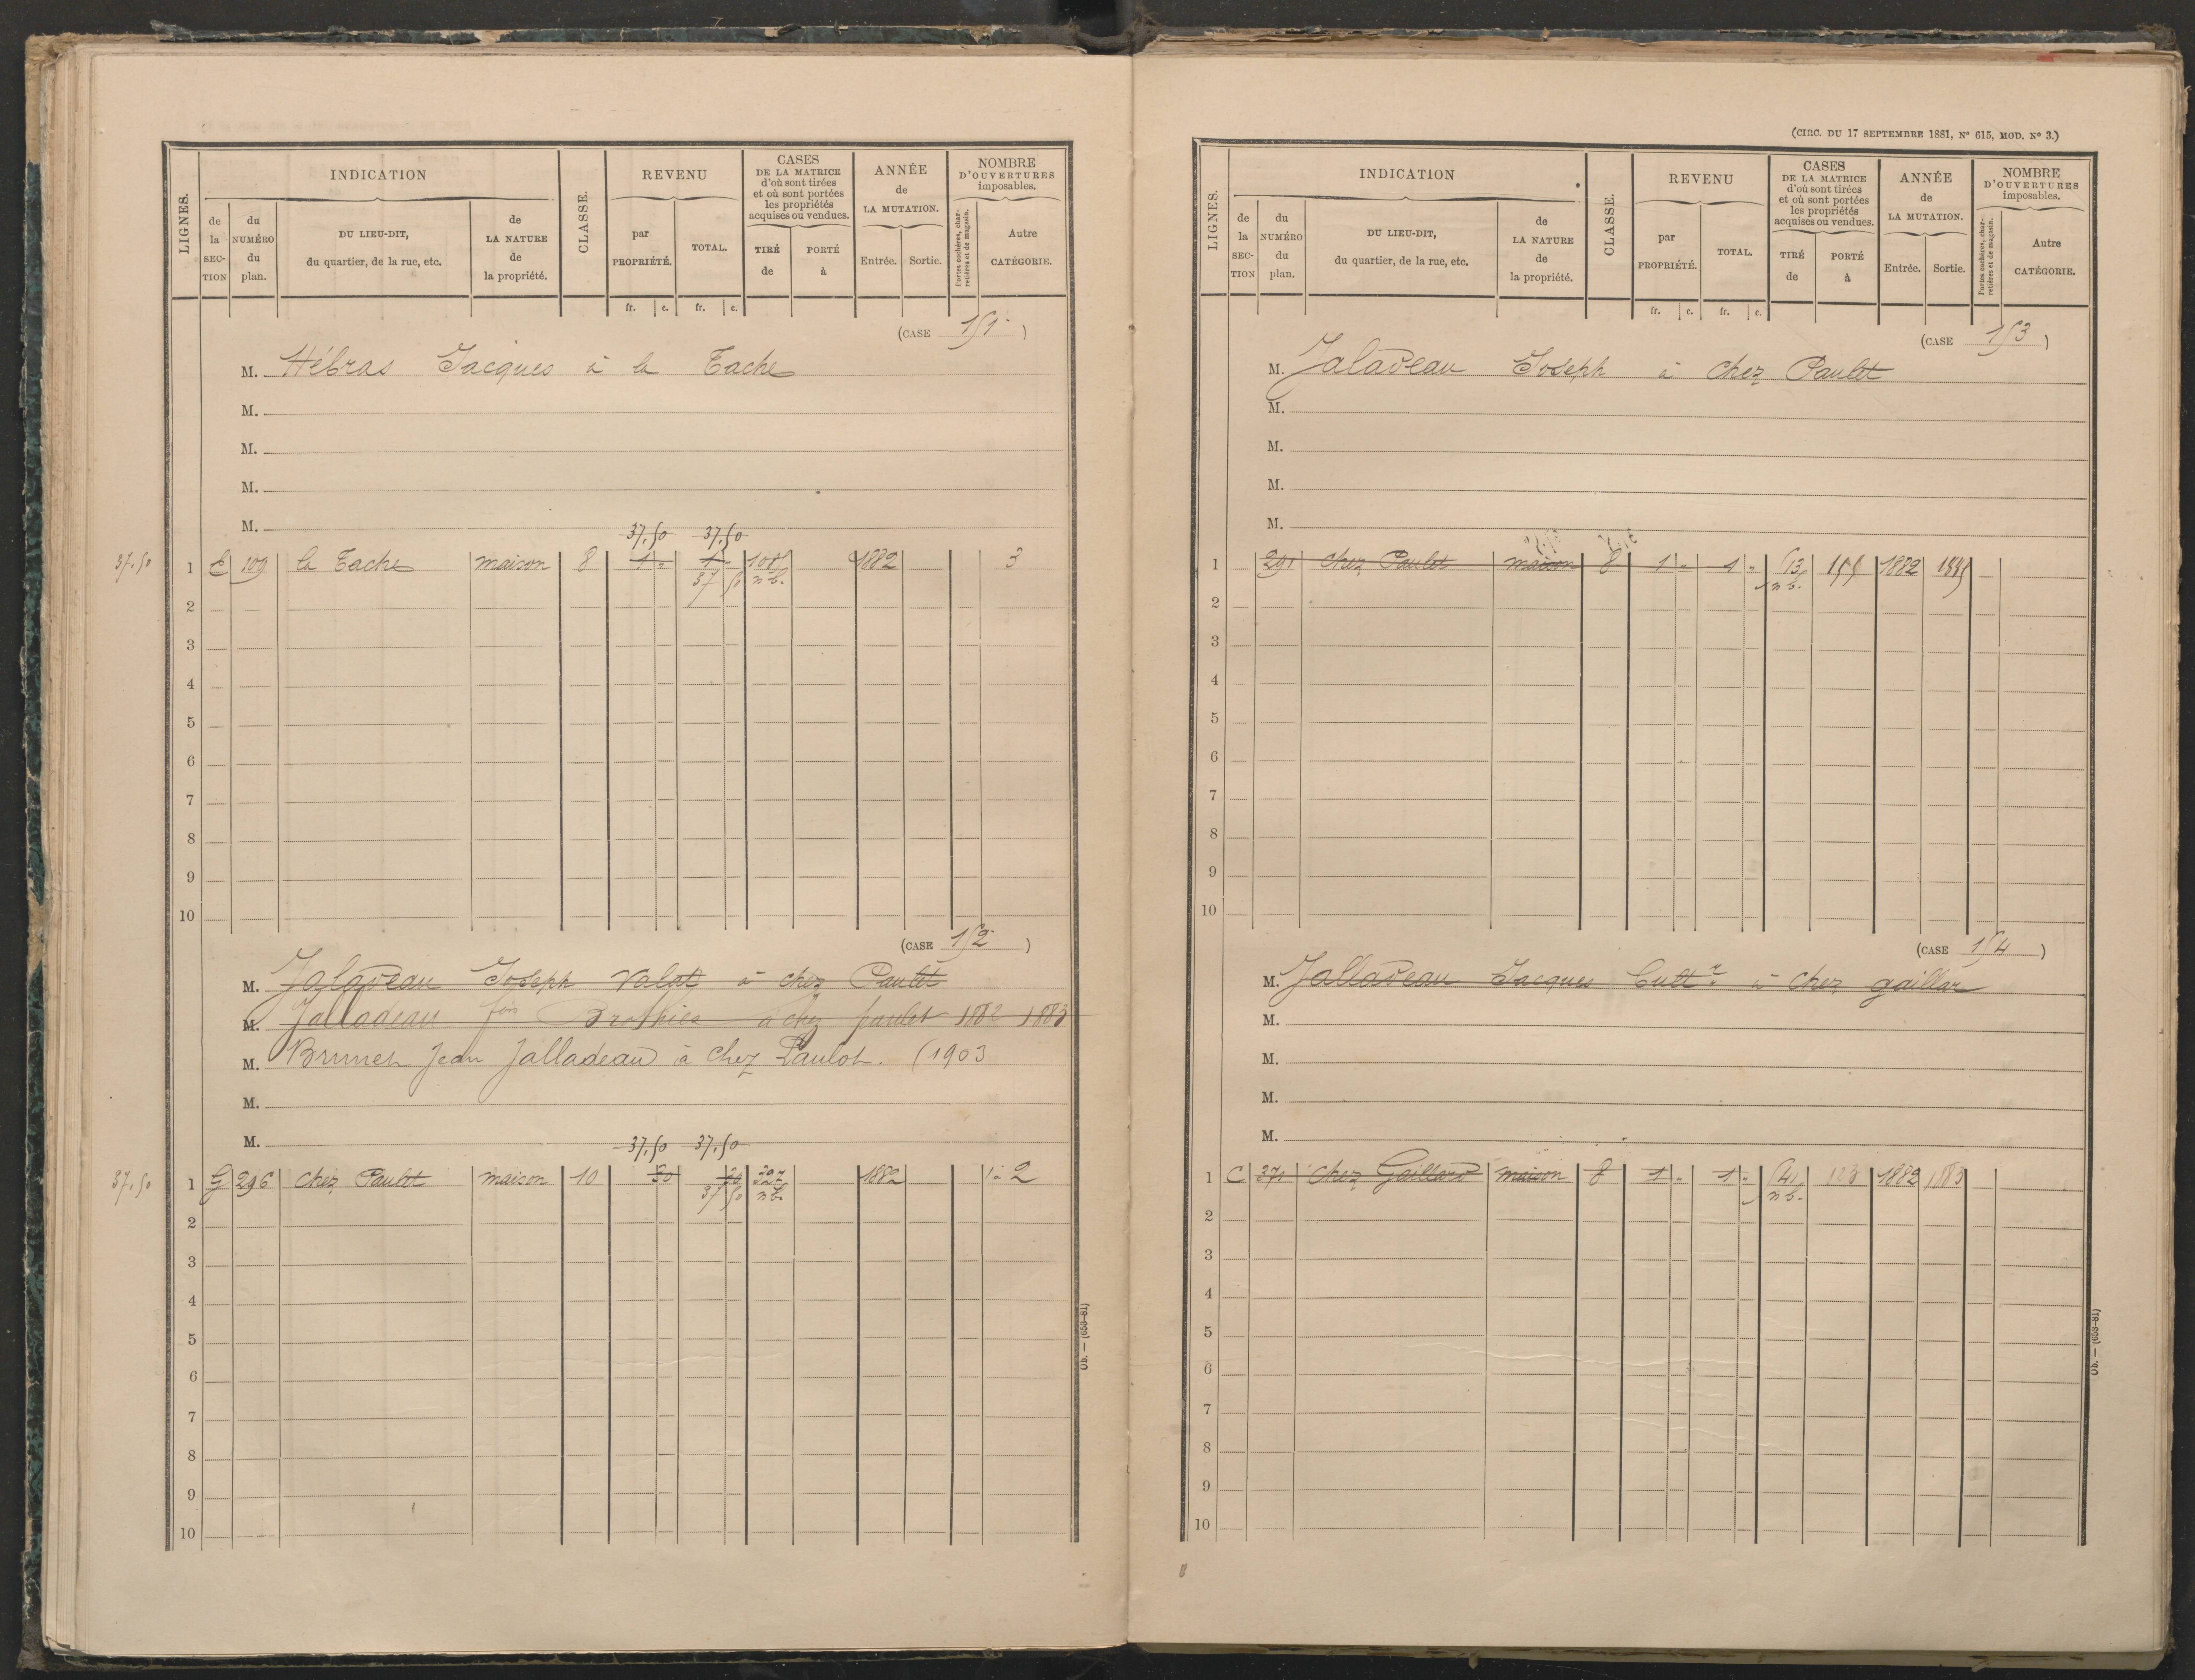 LIGNES.
INDICATION
de la SECTION
du NUMÉRO du plan.
DU LIEU-DIT, du quartier, de la rue, etc.
de LA NATURE de la propriété.
CLASSE.
REVENU
par PROPRIÉTÉ.
TOTAL.
CASES DE LA MATRICE d'où sont tirées et où sont portées les propriétés acquises ou vendues.
TIRÉ de
PORTÉ à
ANNÉE de LA MUTATION.
Entrée.
Sortie.
NOMBRE D'OUVERTURES imposables.
Portes cochères, charretières et de magasin.
Autre CATÉGORIE.
fr. c. fr. c.
(CASE 151)
M. Hébras Jacques à la Tache
M.
M.
M.
M.
37,50 37,50
37,50
1 C 109 la Tache maison 8 1 " 1 " 108 1882 3
37 50 n b.
2
3
4
5
6
7
8
9
10
(CASE 152)
M. Jaladeau Joseph Valet à chez Paulet
M. Jalladeau à chez paulet 1882 1883
M. Brunet Jean Jalladeau à Chez Paulot. (1903
M.
M.
37,50 37,50
37,50
1 G 296 chez Paulet maison 10 30 30 1882 1à 2
37 50 n b.
2
3
4
5
6
7
8
9
10
Ob. — (653-81)
(CIRC. DU 17 SEPTEMBRE 1881, N° 615, MOD. N° 3.)
LIGNES.
INDICATION
de la SECTION
du NUMÉRO du plan.
DU LIEU-DIT, du quartier, de la rue, etc.
de LA NATURE de la propriété.
CLASSE.
REVENU
par PROPRIÉTÉ.
TOTAL.
CASES DE LA MATRICE d'où sont tirées et où sont portées les propriétés acquises ou vendues.
TIRÉ de
PORTÉ à
ANNÉE de LA MUTATION.
Entrée.
Sortie.
NOMBRE D'OUVERTURES imposables.
Portes cochères, charretières et de magasin.
Autre CATÉGORIE.
fr. c. fr. c.
(CASE 153)
M. Jaladeau Joseph à chez Paulet
M.
M.
M.
M.
1 291 chez Paulet maison 8 1 " 1 " 513 155 1882 1885
n b.
2
3
4
5
6
7
8
9
10
(CASE 154)
M. Jalladeau Jacques Cultr à chez gaillar
M.
M.
M.
M.
1 C 371 chez Gaillard maison 8 1 " 1 " 541 123 1882 1883
n b.
2
3
4
5
6
7
8
9
10
Ob. — (653-81)